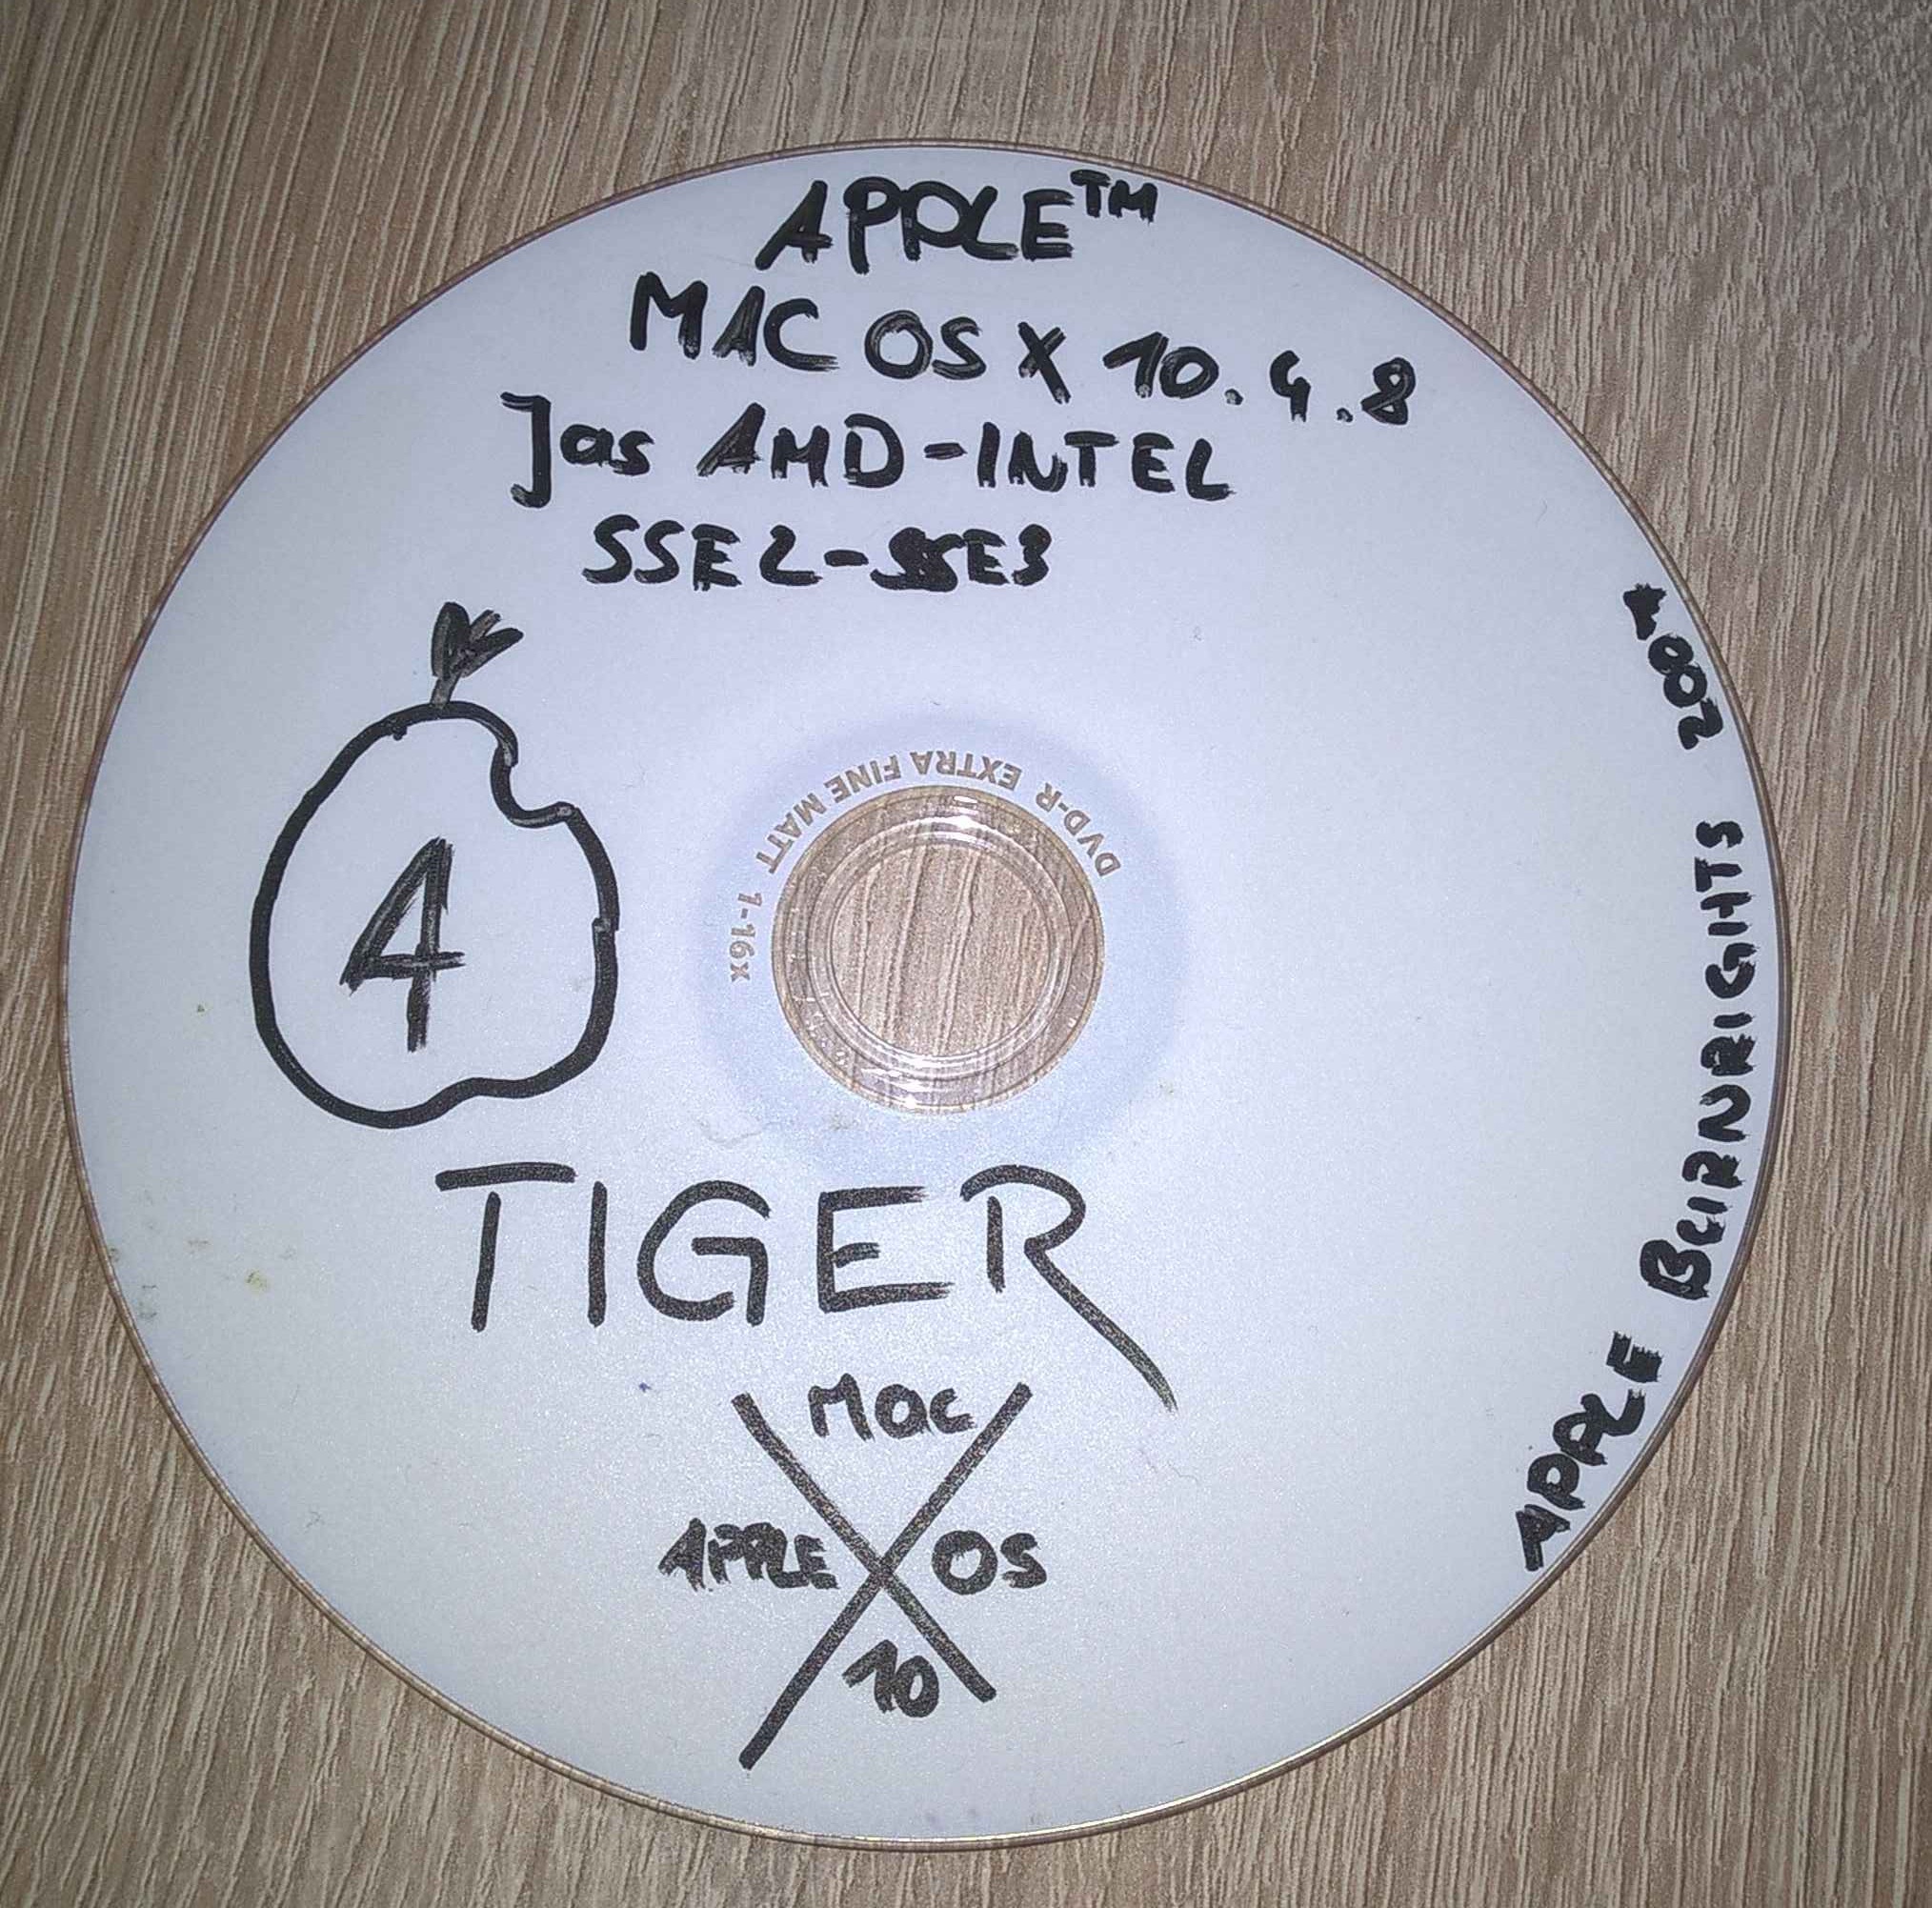 APPLE™
MAC OS X 10.4.8
Jas AMD-INTEL
SSE2-SSE3
4
DVD-R EXTRA FINE MATT 1-16x
TIGER
Mac
APPLE OS
10
APPLE